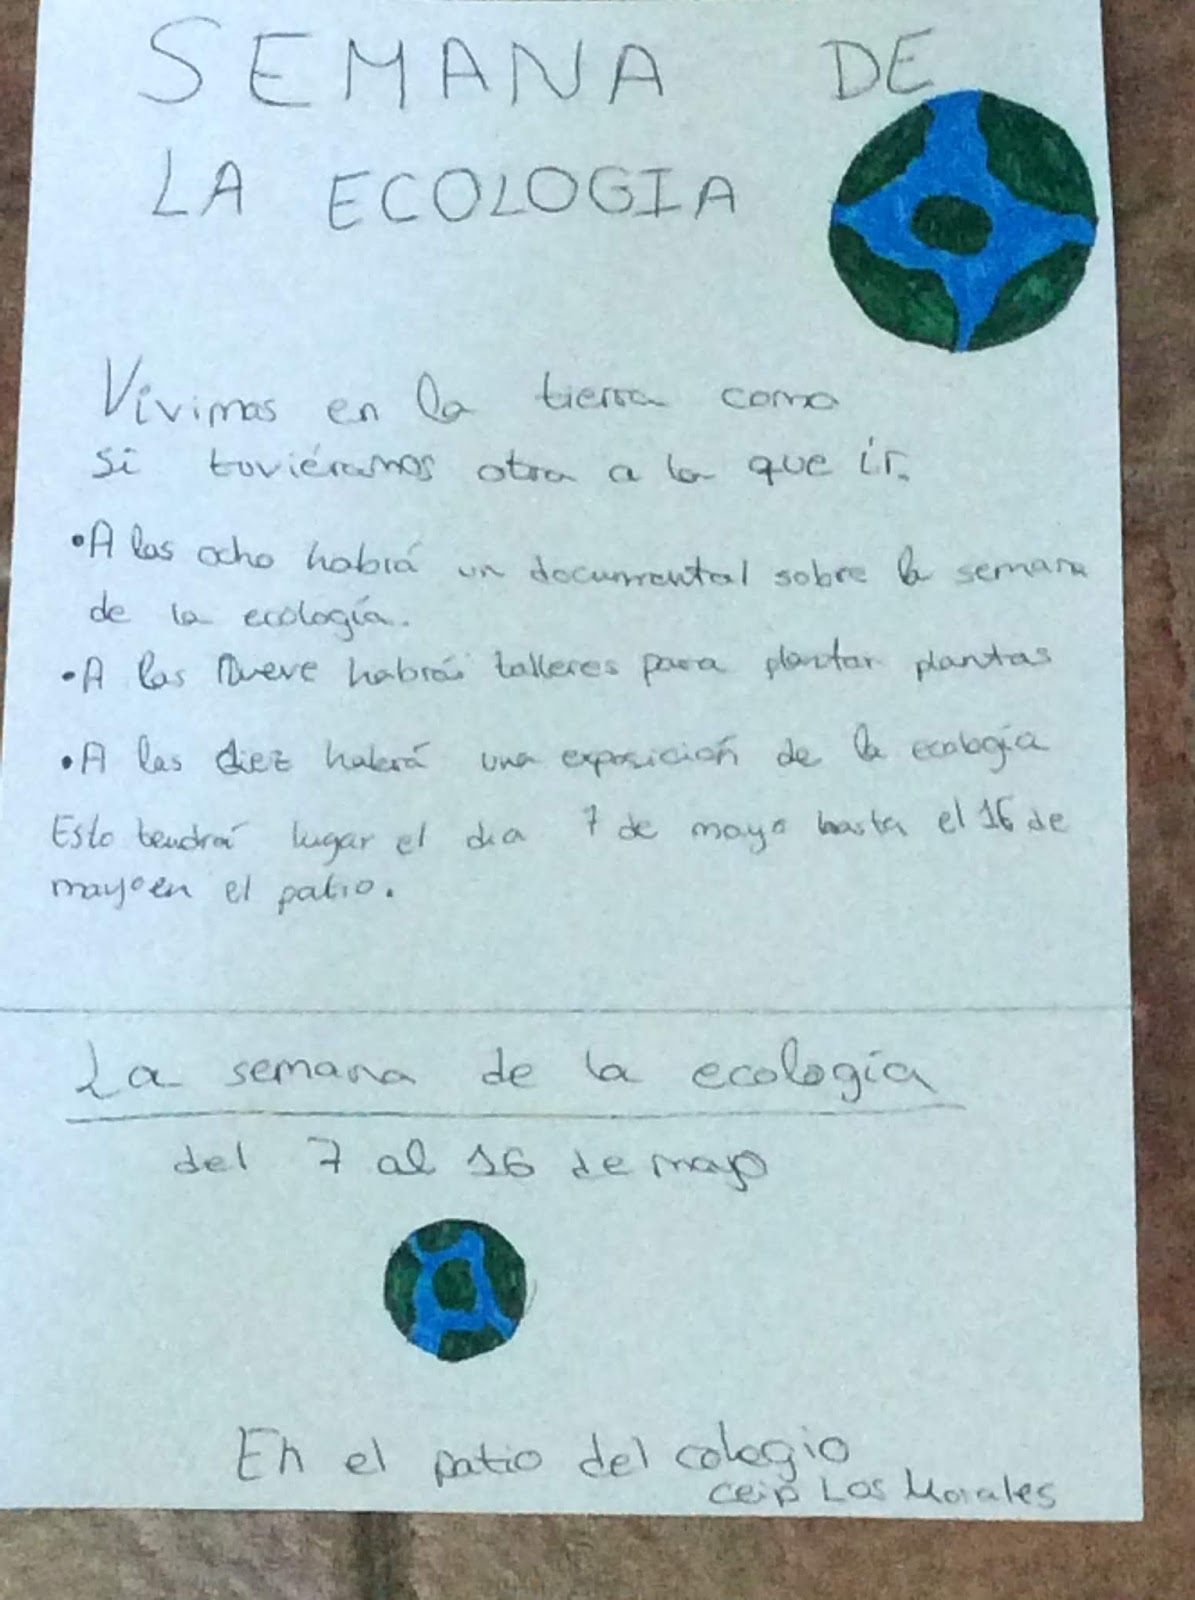 SEMANA DE
LA ECOLOGIA
Vivimos en la tierra como
si toviéramos otra a la que ir.
•A las ocho habrá un documental sobre la semana
de la ecología.
•A las Nueve habrá talleres para plantar plantas
•A las diez habrá una exposición de la ecología
Esto tendrá lugar el dia 7 de mayo hasta el 16 de
mayo en el patio.
La semana de la ecología
del 7 al 16 de mayo
En el patio del colegio
ceip Los Morales